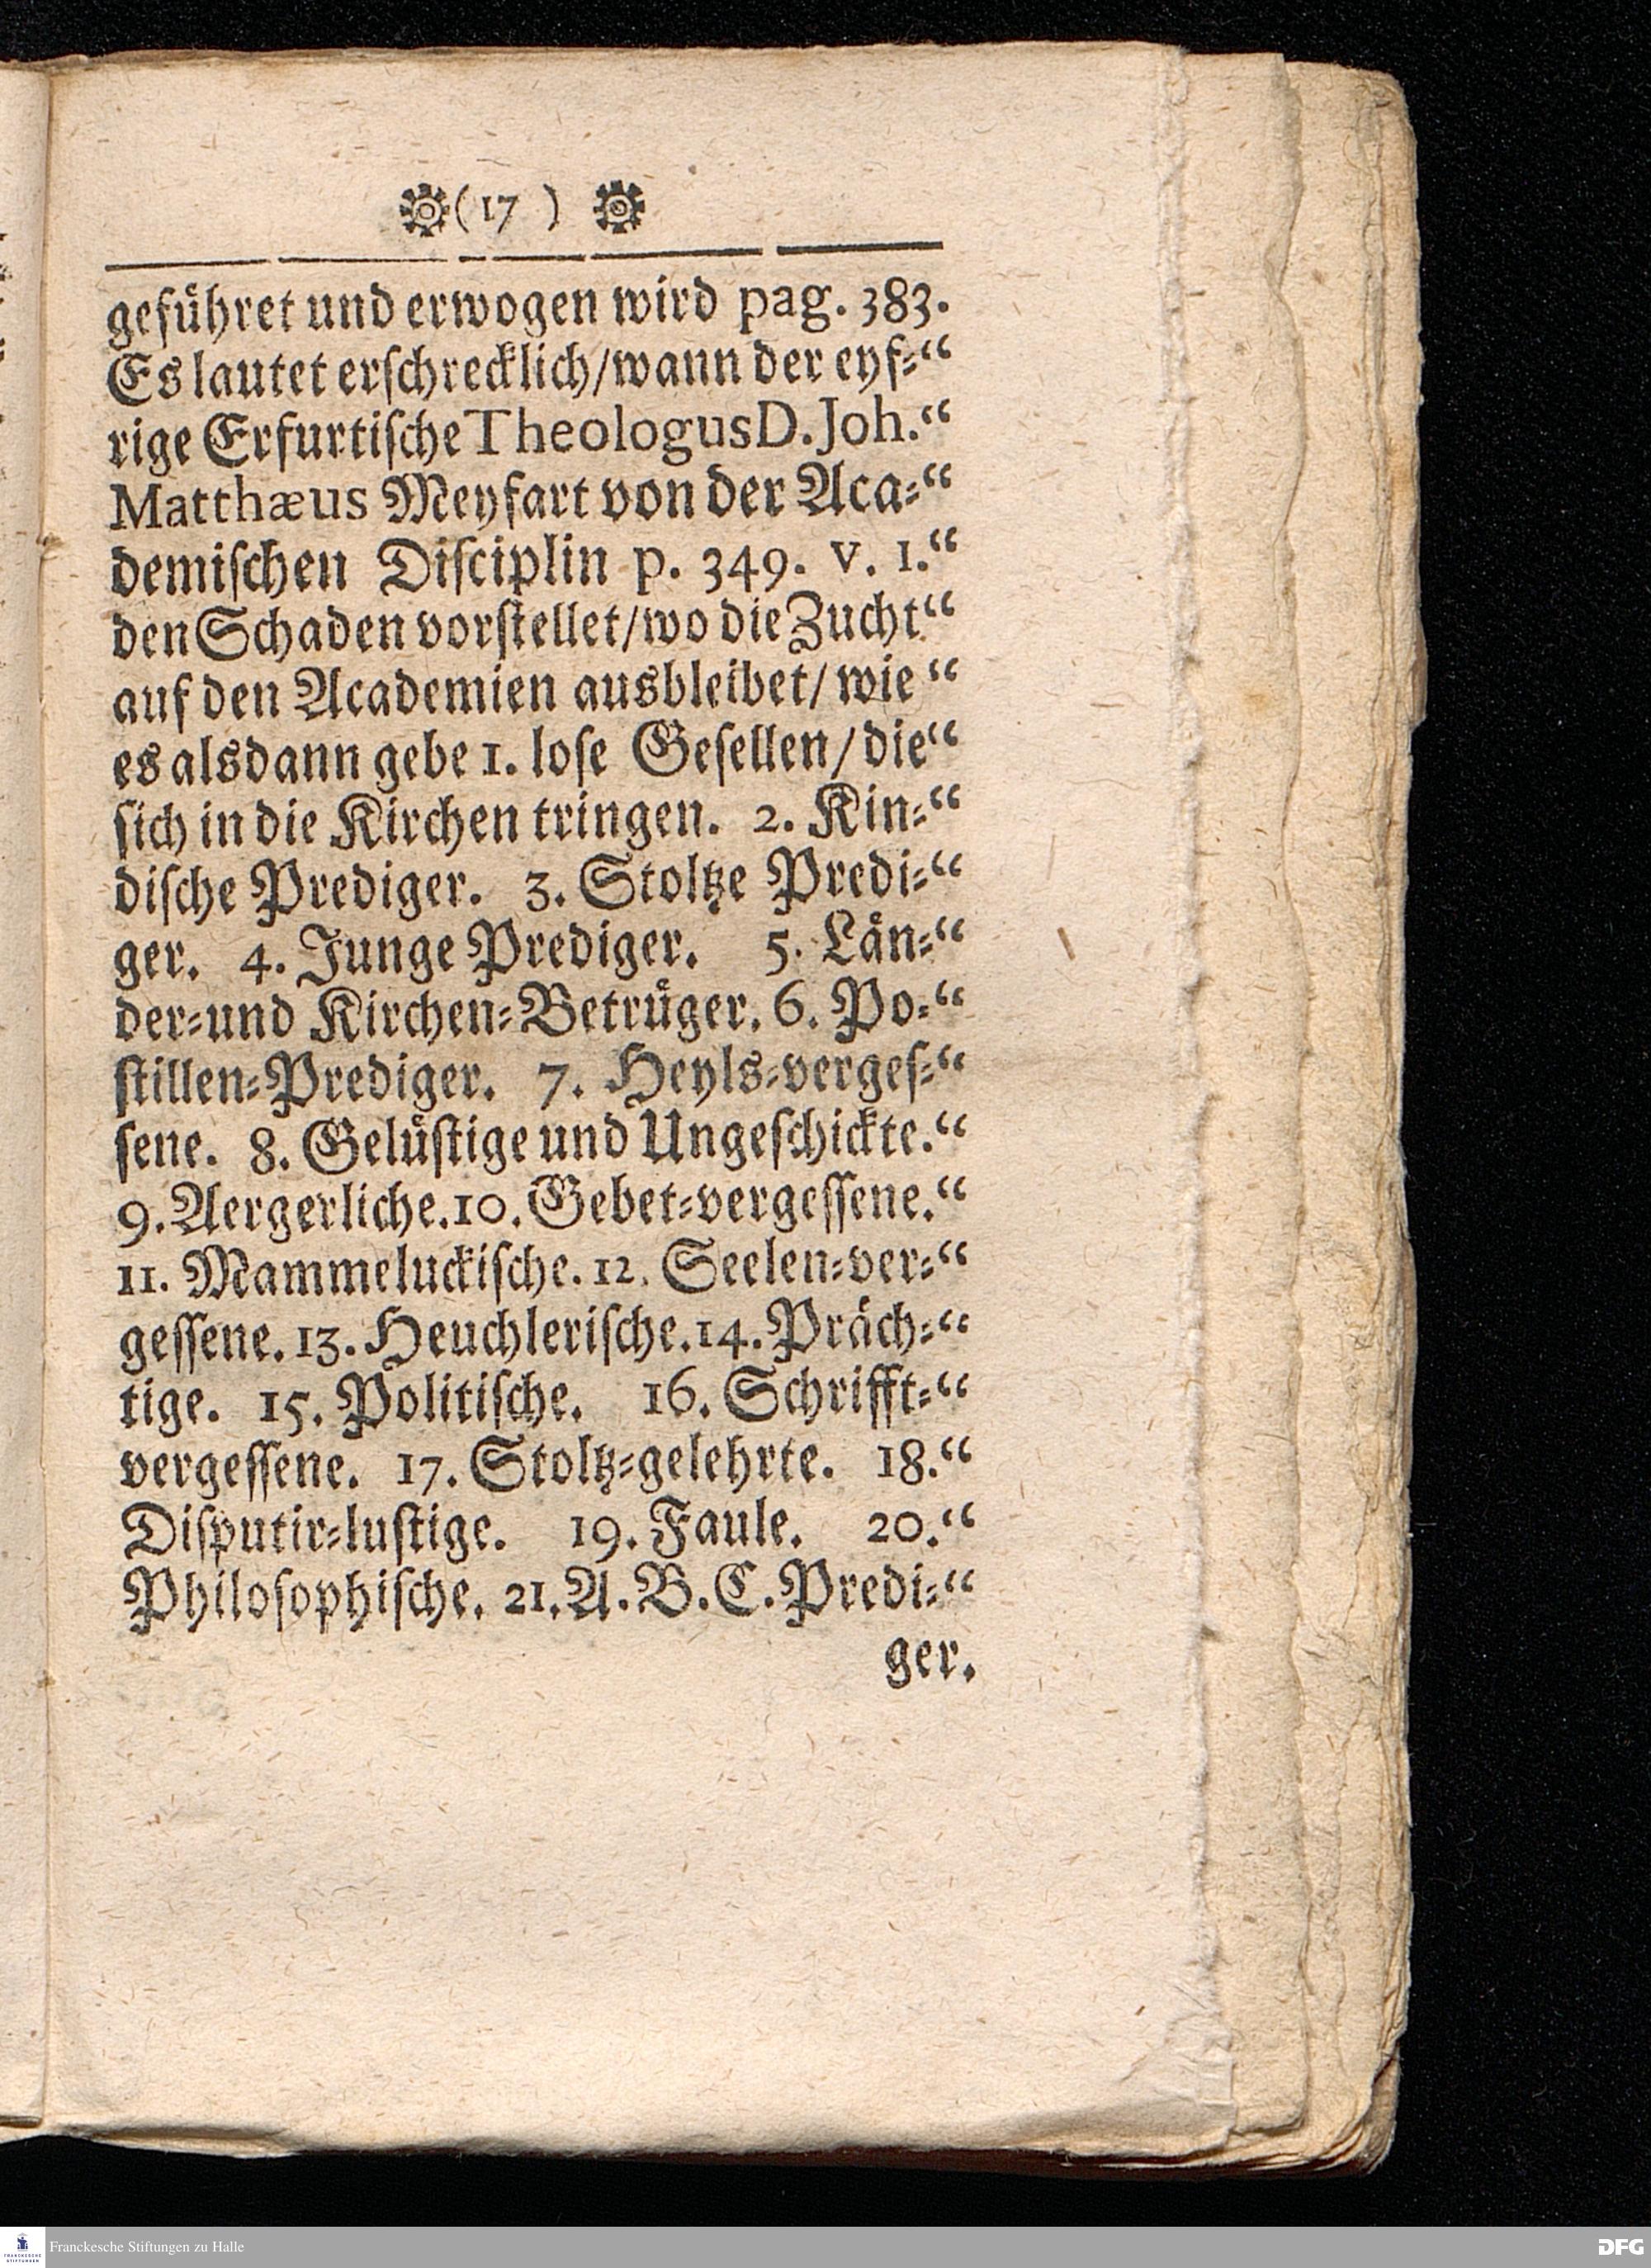 (17)
geführet und erwogen wird pag. 383.
Es lautet erschrecklich/wann der eyf-“
rige Erfurtische Theologus D. Joh.“
Matthæus Meyfart von der Aca-“
demischen Disciplin p. 349. v. 1.“
den Schaden vorstellet/wo die Zucht“
auf den Academien ausbleibet/ wie “
es alsdann gebe 1. lose Gesellen/ die“
sich in die Kirchen tringen. 2. Kin-“
dische Prediger. 3. Stoltze Predi-“
ger. 4. Junge Prediger. 5. Län-“
der-und Kirchen-Betrüger. 6. Po-“
stillen-Prediger. 7. Heyls-verges-“
sene. 8. Gelüstige und Ungeschickte.“
9. Aergerliche. 10. Gebet-vergessene.“
11. Mammeluckische. 12. Seelen-ver-“
gessene. 13. Heuchlerische. 14. Präch-“
tige. 15. Politische. 16. Schrifft-“
vergessene. 17. Stoltz-gelehrte. 18.“
Disputir-lustige. 19. Faule. 20.“
Philosophische. 21. A. B. C. Predi-“
ger.
Franckesche Stiftungen zu Halle
FRANCKESCHE STIFTUNGEN
DFG